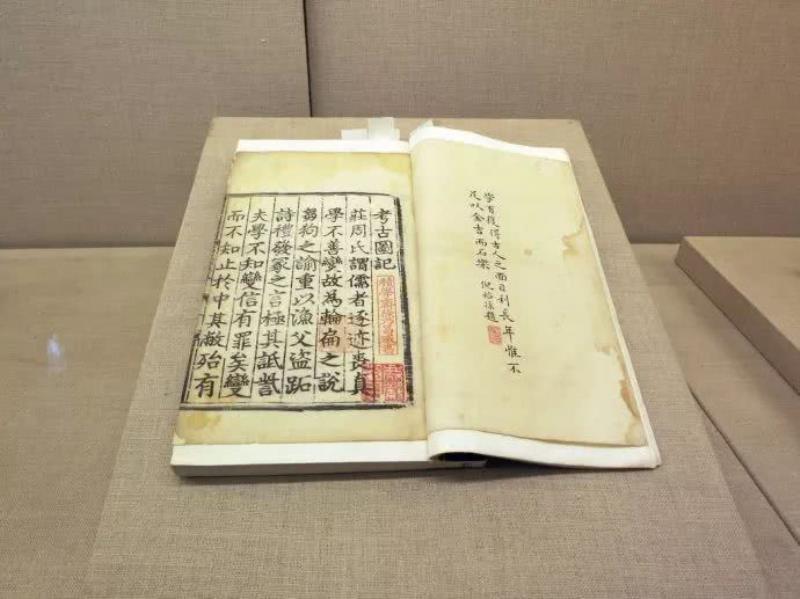 學有得古人之面目利長年惟不
足以金吉而石樂
考古圖記
莊周氏謂儒者逐迹喪真
學不善變故為輪扁之說
芻狗之諭重以漁父盜跖
詩禮發冢之言極其詆訾
夫學不知變信有罪矣變
而不知止於中其敝殆有